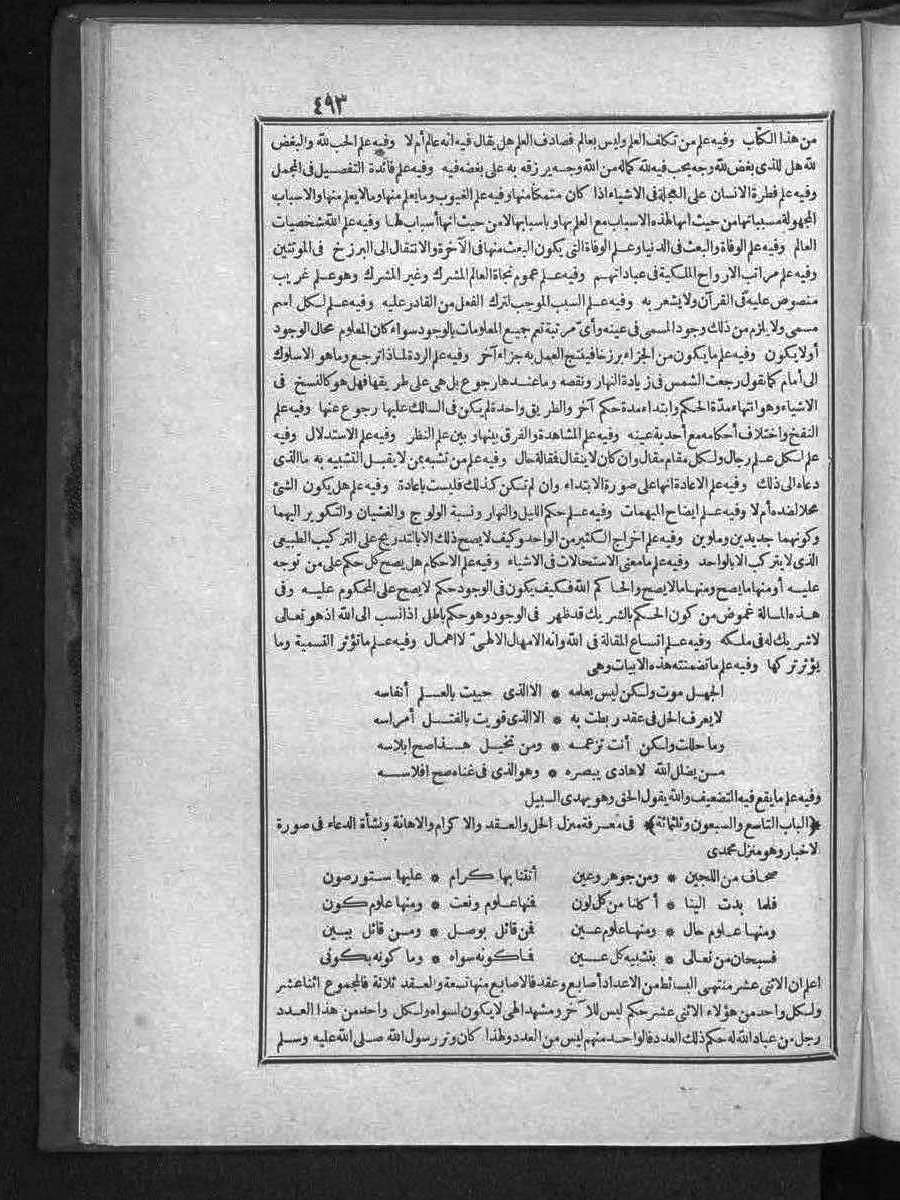 ٤٩٣
من هذا الكتاب وفيه علم من تكلف العلم وليس بعالم فصادف العلم هل يقال فيه انه عالم أم لا وفيه علم الحب لله والبغض
لله هل للذى بغض لله وجه يحب فيه لله كماله من الله وجه يرزقه به على بغضه فيه وفيه علم فائدة التفصيل فى المجمل
وفيه علم فطرة الانسان على العجلة فى الاشياء اذا كان متمكنا منها وفيه علم الغيوب وما يعلم منها وما لا يعلم منها والاسباب
المجهولة مسبباتها من حيث انها لهذه الاسباب مع العلم بها وباسبابها لا من حيث انها أسباب لها وفيه علم الله شخصيات
العالم وفيه علم الوفاة والبعث فى الدنيا وعلم الوفاة التى يكون البعث منها فى الآخرة والانتقال الى البرزخ فى الموتتين
وفيه علم مراتب الارواح الملكية فى عباداتهم وفيه علم عموم نجاة العالم المشرك وغير المشرك وهو علم غريب
منصوص عليه فى القرآن ولا يشعر به وفيه علم السبب الموجب لترك الفعل من القادر عليه وفيه علم لكل اسم
مسمى ولا يلزم من ذلك وجود المسمى فى عينه وأى مرتبة تعم جميع المعلومات بالوجود سواء كان المعلوم محال الوجود
أولا يكون وفيه علم ما يكون من الجزاء برزخا فينتج العمل به جزاء آخر وفيه علم الردة لماذا ترجع وما هو الا سلوك
الى أمام كما نقول رجعت الشمس فى زيادة النهار ونقصه وما عندها رجوع بل هى على طريقها فهل هو كالنسخ فى
الاشياء وهو انتهاء مدّة الحكم وابتداء مدة حكم آخر والطريق واحدة لم يكن فى السالك عليها رجوع عنها وفيه علم
النفخ واختلاف أحكامه مع أحدية عينه وفيه علم المشاهدة والفرق بينها وبين علم النظر وفيه علم الاستدلال وفيه
علم لكل علم رجال ولكل مقام مقال وان كان لا ينقال فقاله حال وفيه علم من تشبه بمن لا يقبل التشبيه به ما الذى
دعاه الى ذلك وفيه علم الاعادة انها على صورة الابتداء وان لم تكن كذلك فليست باعادة وفيه علم هل يكون الشئ
محلا لضده أم لا وفيه علم ايضاح المبهمات وفيه علم حكم الليل والنهار ونسبة الولوج والغشيان والتكوير اليهما
وكونهما جديدين وملوين وفيه علم اخراج الكثير من الواحد وكيف لا يصح ذلك الا بالتدريج على التركيب الطبيعى
الذى لا يتركب الا بالواحد وفيه علم ما معنى الاستحالات فى الاشياء وفيه علم الاحكام هل يصح كل حكم على من توجه
عليه أو منها ما يصح ومنها ما لا يصح والحاكم الله فكيف يكون فى الوجود حكم لا يصح على المحكوم عليه وفى
هذه المسألة غموض من كون الحكم بالشريك قد ظهر فى الوجود وهو حكم باطل اذا نسب الى الله اذ هو تعالى
لا شريك له فى ملكه وفيه علم اتساع المقالة فى الله وانه الامهال الالهىّ لا اهمال وفيه علم ما تؤثر القسمية وما
يؤثر تركها وفيه علم ما تضمنته هذه الابيات وهى
الجهل موت ولكن ليس يعلمه * الا الذى حييت بالعلم أنفاسه
لا يعرف الحل فى عقد ربطت به * الا الذى قويت بالفتل أمراسه
وما حللت ولكن أنت تزعمه * ومن تخيل هذا صح ابلاسه
من يضلل الله لا هادى يبصره * وهو الذى فى غناه صح افلاسه
وفيه علم ما يقع فيه التضعيف والله يقول الحق وهو يهدى السبيل
﴿الباب التاسع والسبعون وثلثمائة﴾ فى معرفة منزل الحل والعقد والاكرام والاهانة ونشأة الدعاء فى صورة
لاخبار وهو منزل محمدى
صحاف من اللجين * ومن جوهر وعين أتتنا بها كرام * عليها ستور صون
فلما بدت الينا * أكلنا من كل لون فنها علوم ونعت * ومنها علوم كون
ومنها علوم حال * ومنها علوم عين فمن قائل بوصل * ومن قائل ببين
فسبحان من تعالى * بتشبيه كل عين فما كونه سواه * وما كونه بكونى
اعلم ان الاثنى عشر منتهى البسائط من الاعداد أصابع وعقد فالاصابع منها تسعة والعقد ثلاثة فالمجموع اثنا عشر
ولكل واحد من هؤلاء الاثنى عشر حكم ليس للآخر ومشهد الهى لا يكون لسواه ولكل واحد من هذا العدد
رجل من عباد الله له حكم ذلك العدد فالواحد منهم ليس من العدد ولهذا كان وتر رسول الله صلى الله عليه وسلم